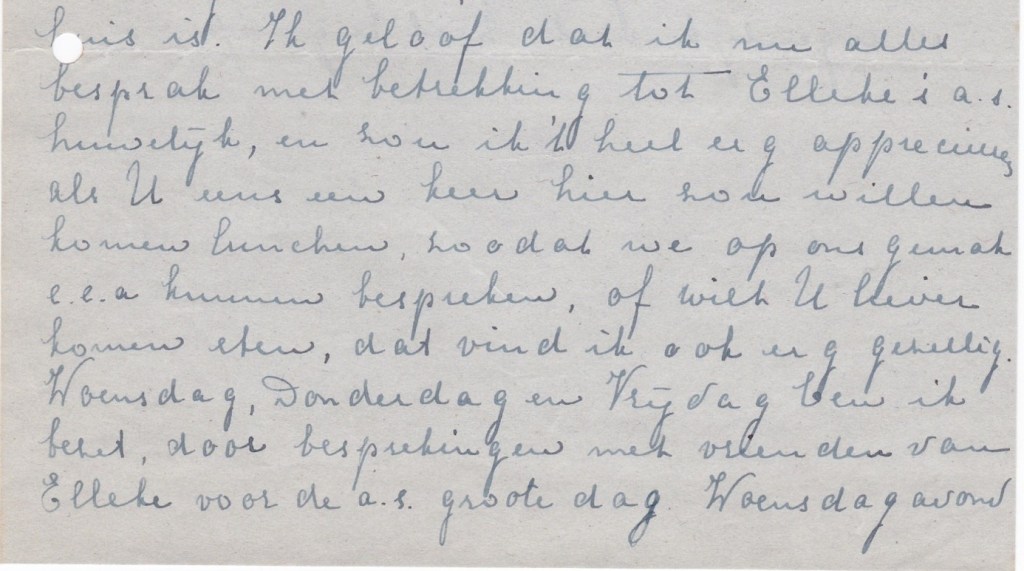 huis is. Ik geloof dat ik nu alles
besprak met betrekking tot Elleke's a.s.
huwelijk, en zou ik 't heel erg appreciëeren
als U eens een keer hier zou willen
komen lunchen, zoodat we op ons gemak
e.e.a kunnen bespreken, of wilt U liever
komen eten, dat vind ik ook erg gezellig.
Woensdag, Donderdag en Vrijdag ben ik
bezet, door besprekingen met vrienden van
Elleke voor de a.s. groote dag. Woensdagavond